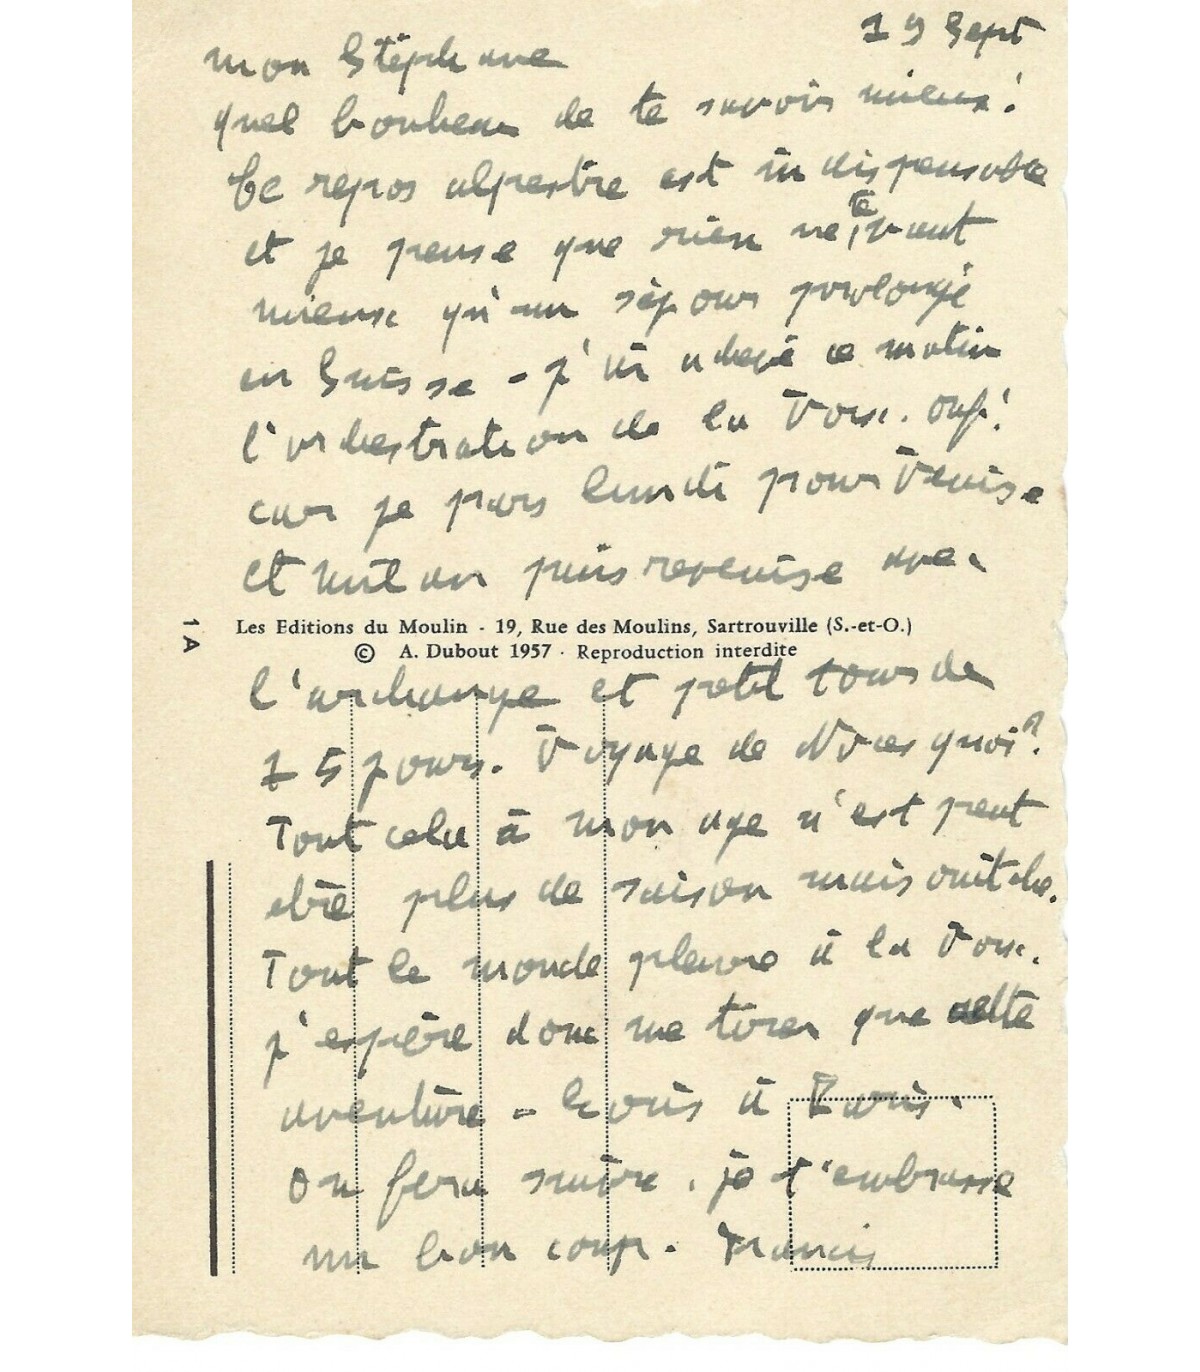 19 Sept
mon Stéphane
quel bonheur de te savoir mieux!
Ce repos alpestre est indispensable
et je pense que rien ne te vaut
mieux qu'un séjour prolongé
en Suisse - j'ai achevé ce matin
l'orchestration de la Voix. ouf!
car je pars lundi pour Venise
et milan puis revenise avec
1A
Les Editions du Moulin - 19, Rue des Moulins, Sartrouville (S.-et-O.)
© A. Dubout 1957 · Reproduction interdite
l'archange et petit tour de
15 jours. Voyage de Noces quoi?
Tout cela à mon age n'est peut
etre plus de saison mais
Tout le monde pleure à la Voix.
j'espère donc me tirer que cette
aventure - Ecris à Paris.
on fera suivre. je t'embrasse
un bon coup. Francis